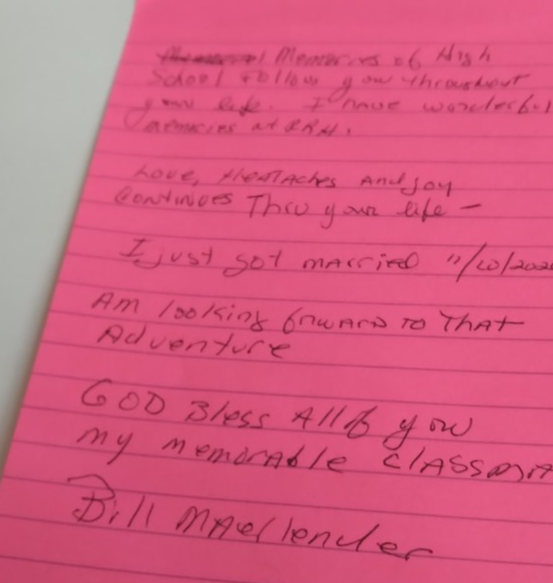 Memories of High
School Follow you throughout
your life. I have wonderful
memories at RRH.
Love, HeartAches and joy
Continues Thru your life —
I just got married 11/10/202
Am looking forward to That
Adventure
GOD Bless All of you
my memorable classma
Bill